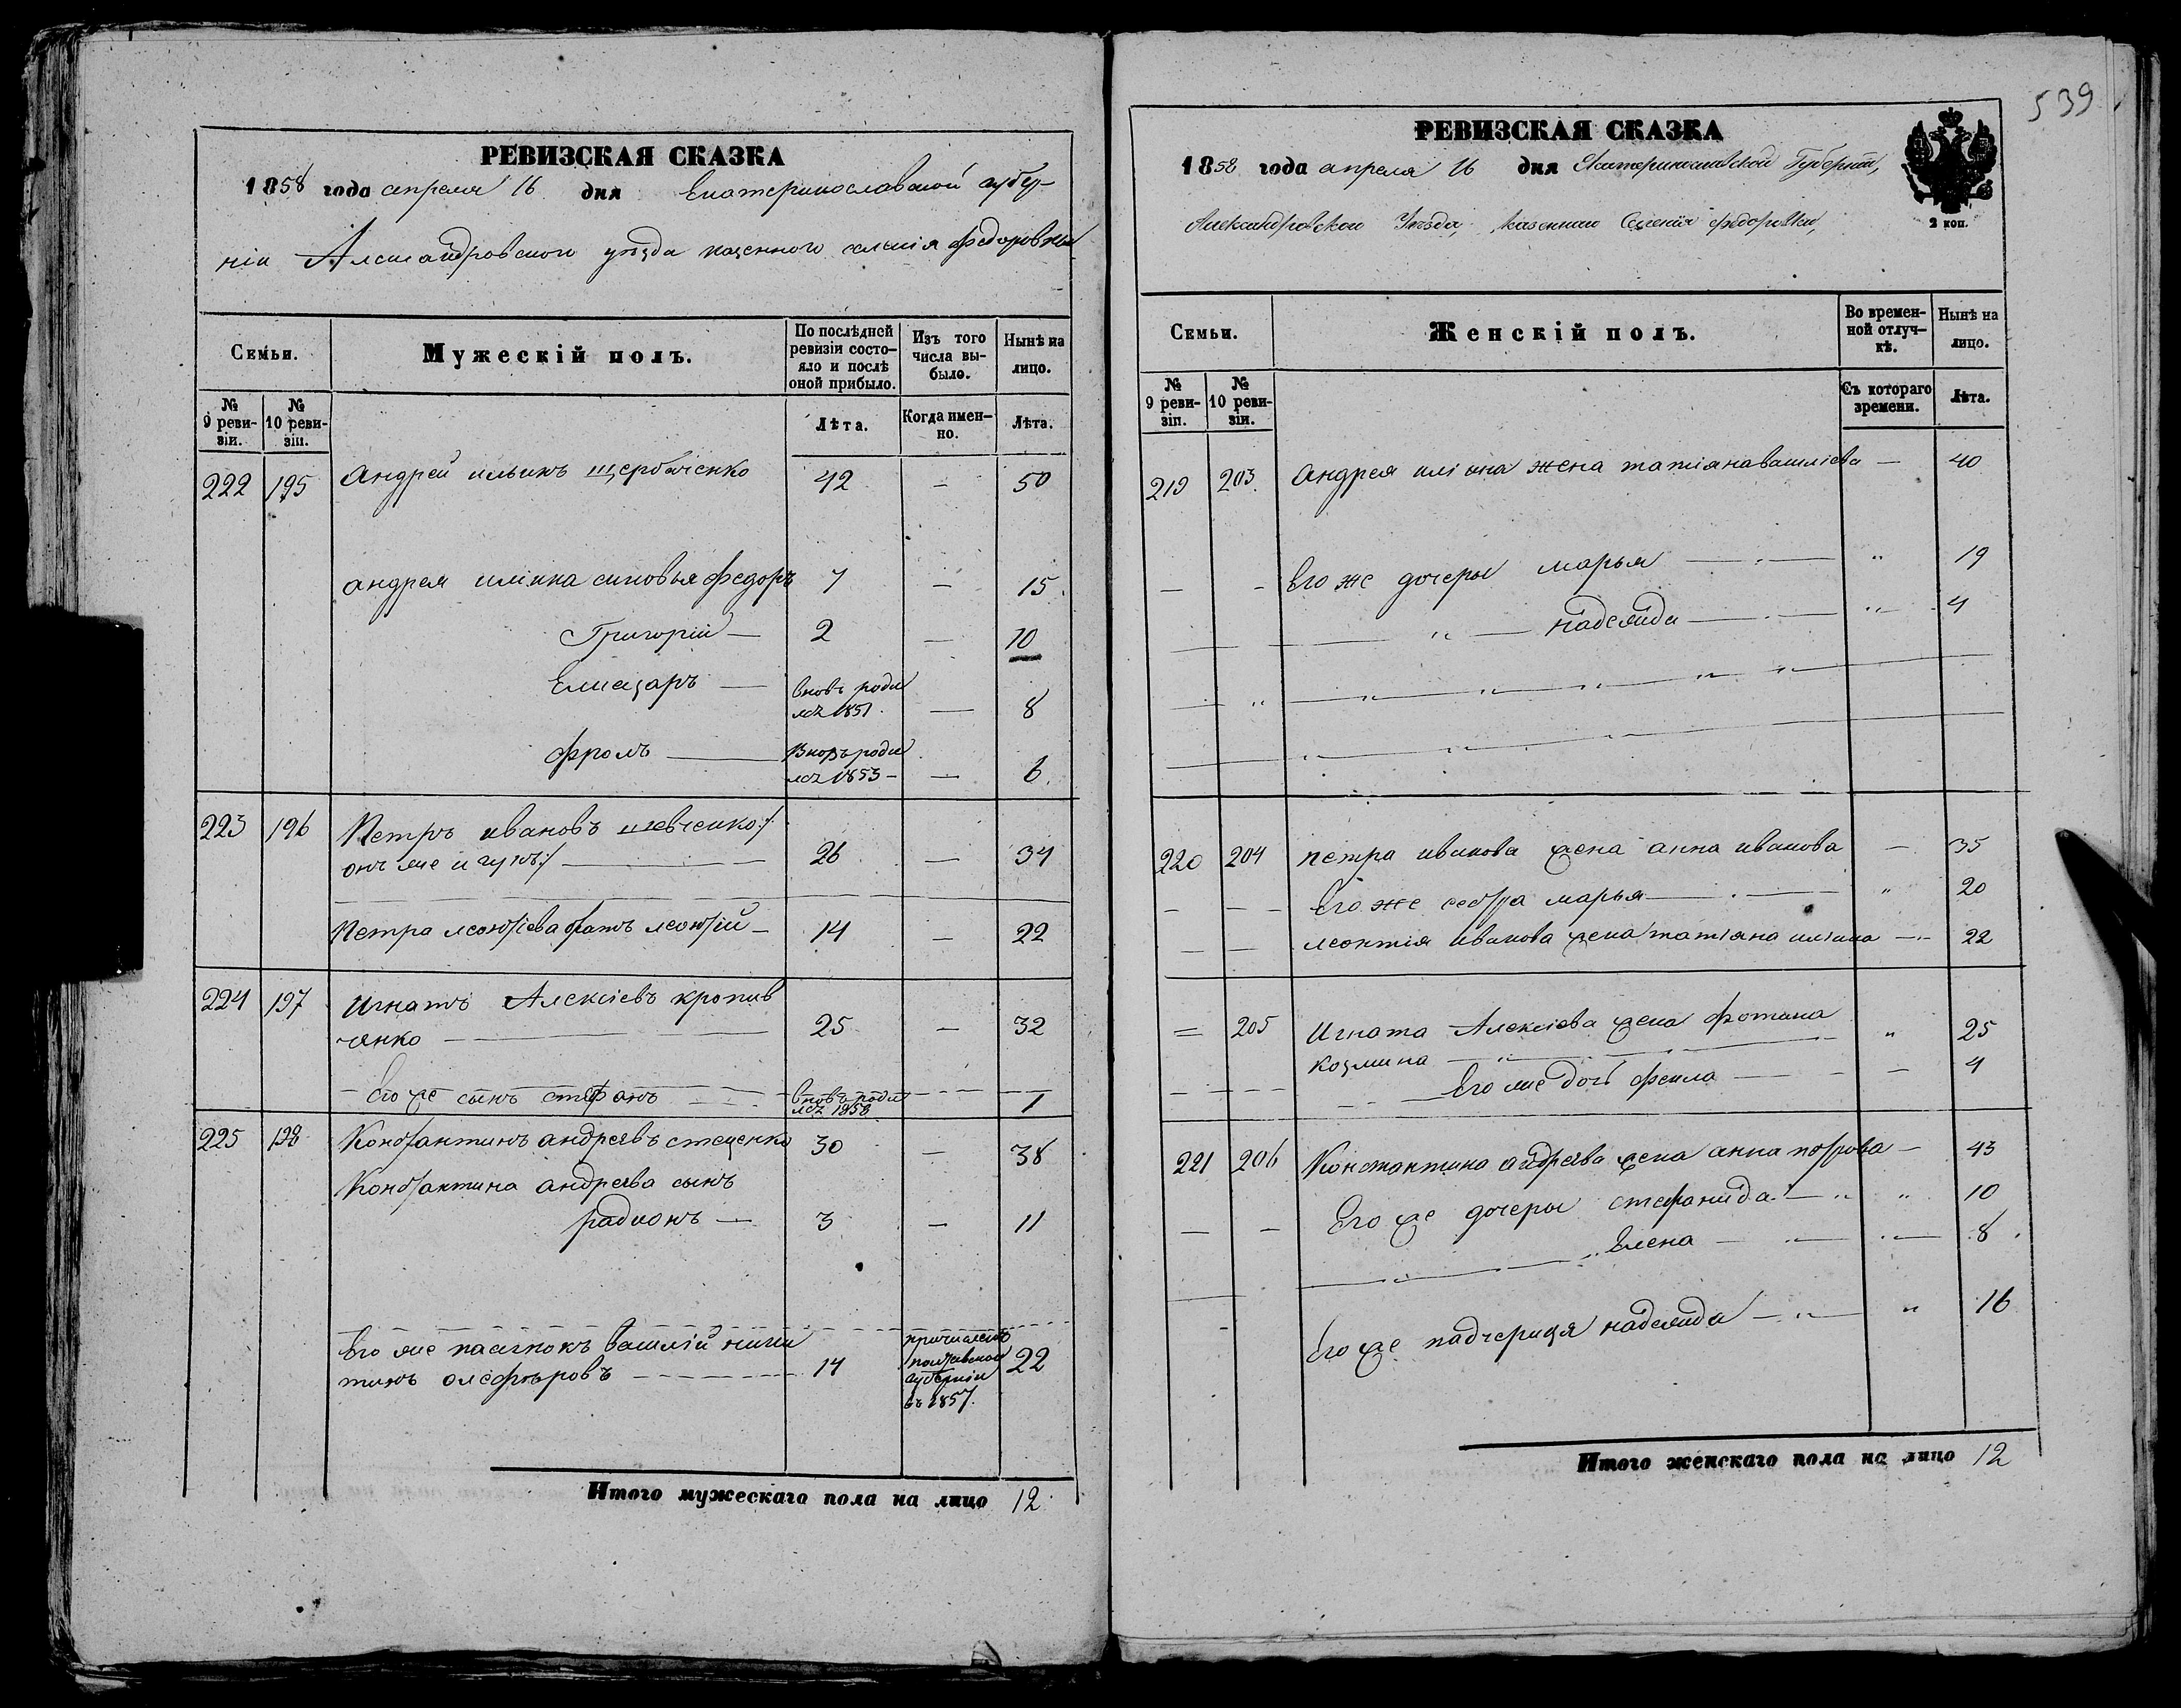 РЕВИЗСКАЯ СКАЗКА
1858 года апреля 16 дня Екатеринославской губер-
ніи Александровского уезда казенного селенія Федоровки
Семьи.
Мужескій полъ.
По послѣдней ревизіи состо-яло и послѣ оной прибыло.
Изъ того числа вы-было.
Нынѣ на лицо.
№ 9 реви-зіи.
№ 10 реви-зіи.
Лѣта.
Когда имен-но.
Лѣта.
222 195 Андрей ильинъ щербаченко 42 — 50
андрея иліина сыновья федоръ 7 — 15
Григорій — 2 — 10
Елиазаръ — вновь роди
лся 1851 — 8
фролъ — Вновь роди
лся 1853 — — 6
223 196 Петръ ивановъ шевченко /:
онъ же и :/ — 26 — 34
Петра леонтіева братъ леонтій — 14 — 22
224 197 Игнатъ Алексіевъ кропив
янко — 25 — 32
— Его же сынъ стефанъ — вновь роди
лся 1858 — 1
225 198 Константинъ андреевъ стеценко 30 — 38
Константина андреева сынъ
радионъ — 3 — 11
Его же пасынокъ василій ники
тинъ — 14 причисленъ
полтавской
губерніи
въ 1857. 22
Итого мужескаго пола на лицо 12
539
РЕВИЗСКАЯ СКАЗКА
1858 года апреля 16 дня Екатеринославской Губерніи,
Александровского Уезда, казенного Селенія федоровки,
2 коп.
Семьи.
Женскій полъ.
Во времен-ной отлуч-кѣ.
Нынѣ на лицо.
№ 9 реви-зіи.
№ 10 реви-зіи.
Съ котораго времени.
Лѣта.
219 203 Андрея иліина жена татіяна василіева — 40
— — Его же дочеры марья — " 19
— " — надежда — " 4
220 204 петра иванова жена анна иванова — 35
— — — Его же сестра марья — " 20
— — леонтія иванова жена татіяна иліина — 22
= 205 Игната Алексіева жена фотина
козмина — " 25
— — — Его же дочь фекла — — 4
221 206 Константина андреева жена анна петрова — 43
— — Его же дочеры стефанида — " 10
Елена — 8
- Его же падчерица надежда — " 16
Итого женскаго пола на лицо 12